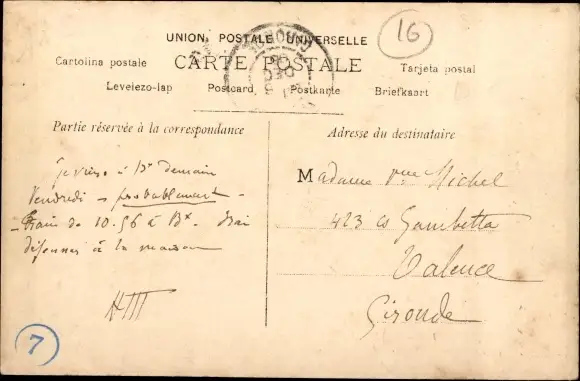 16
UNION POSTALE UNIVERSELLE
CARTE POSTALE
Cartolina postale
Tarjeta postal
Levelezo-lap Postcard Postkarte Briefkaart
Partie réservée à la correspondance
Je viens à Bx demain
Vendredi - probablement -
train de 10.56 à Bx. J'irai
déjeuner à la maison
Adresse du destinataire
Madame Vve Michel
423 Cs Gambetta
Talence
Gironde
7